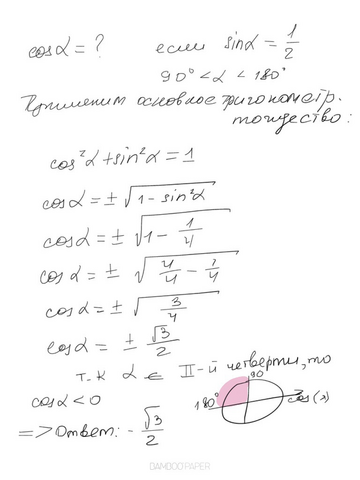 cosα = ? если sinα = 1/2
90° < α < 180°
Применим основное тригонометр.
тождество:
cos²α + sin²α = 1
cosα = ± √(1 - sin²α)
cosα = ± √(1 - 1/4)
cosα = ± √(4/4 - 1/4)
cosα = ± √(3/4)
cosα = ± √3/2
т.к α ∈ II-й четверти, то
cosα < 0
90
180° cos(x)
=> Ответ: - √3/2
BAMBOO PAPER